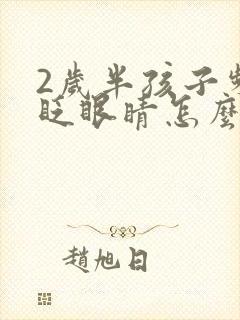 2歲半孩子
眨眼睛怎麼
趙旭日